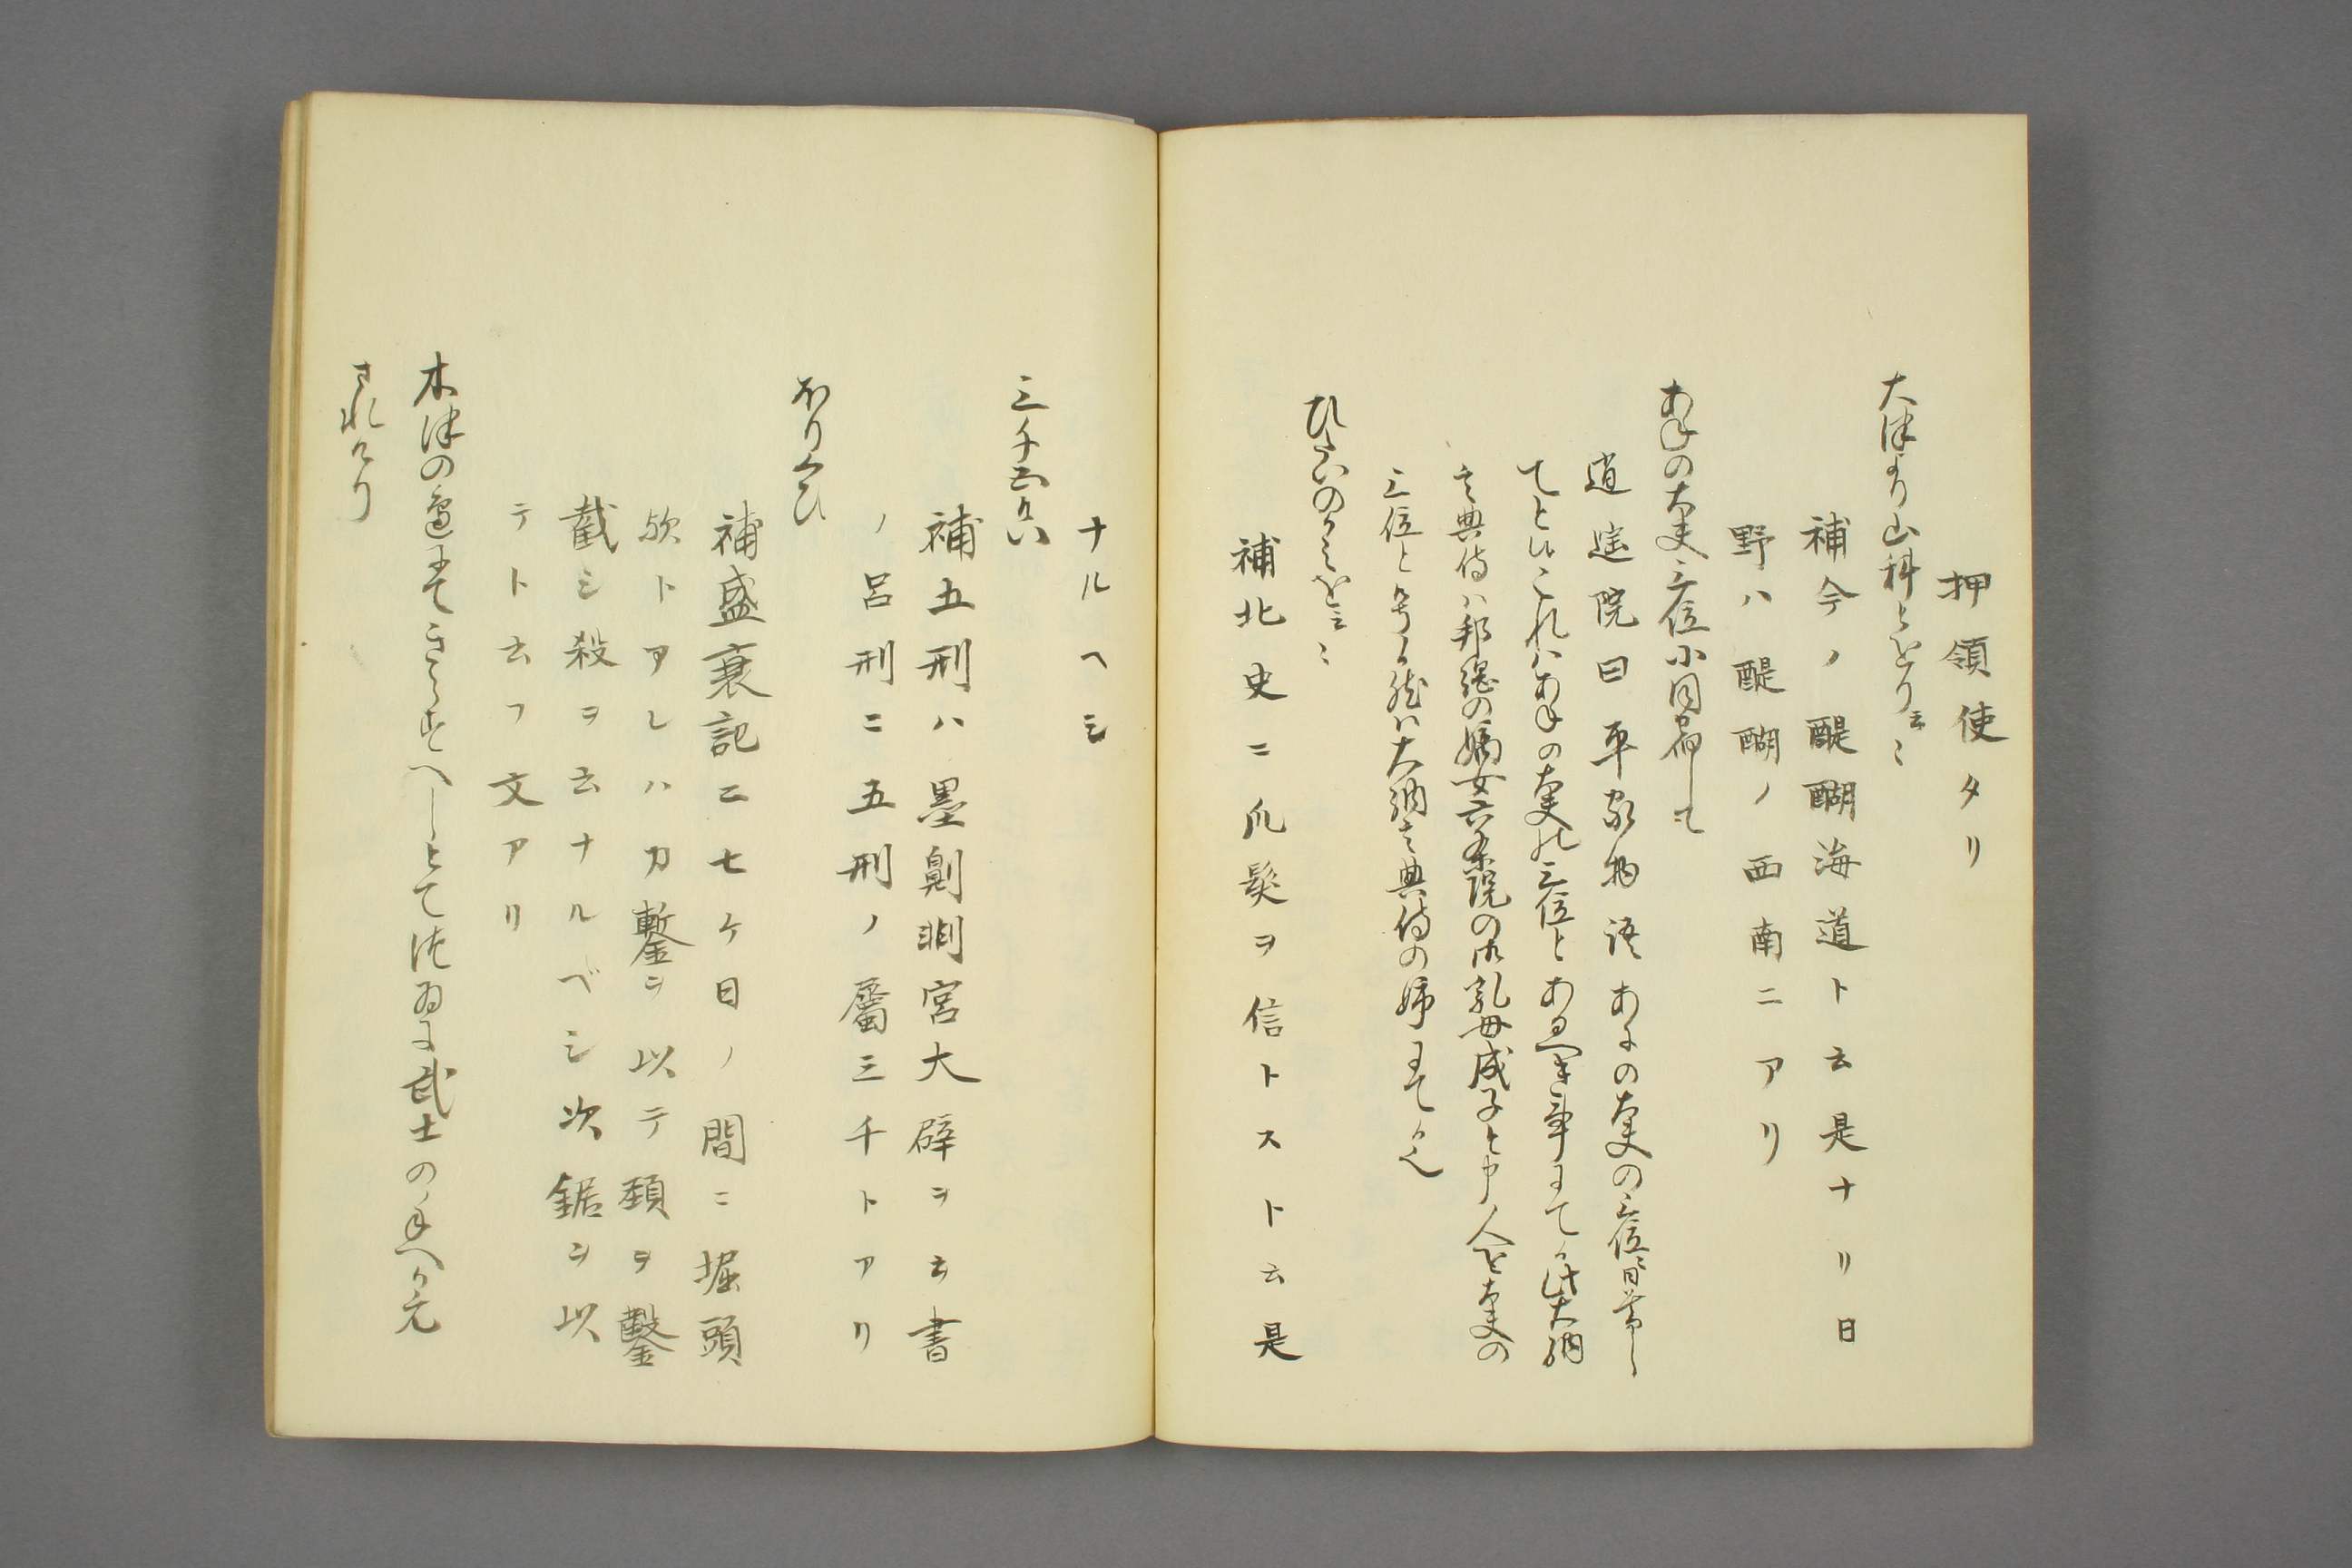 押領使タリ
大津より山科とをり云〻
補今ノ醍醐海道ト云是ナリ日
野ハ醍醐ノ西南ニアリ
あねの大夫三位に同宿して
逍遥院曰平家物語あねの大夫の三位に同宿し
てとハこれハあねの大夫の三位とあるへき事にて此大納
言典侍ハ邦綱の嫡女六条院の御乳母成子と申人を大夫の
三位と号ス然ハ大納言典侍の姉にて
ひたいのかみを云〻
補北史ニ爪髪ヲ信トスト云是
ナルヘシ
三千五けい
補五刑ハ墨劓剕宮大辟ヲ云書
ノ呂刑ニ五刑ノ屬三千トアリ
ほりくひ
補盛衰記ニ七ケ日ノ間ニ堀頭
欤トアレハカ鏨ヲ以テ頚ヲ鑿
截シ殺ヲ云ナルベシ次鋸ヲ以
テト云フ文アリ
木津の邊にてきらすへしとて武士の手へ
されけり